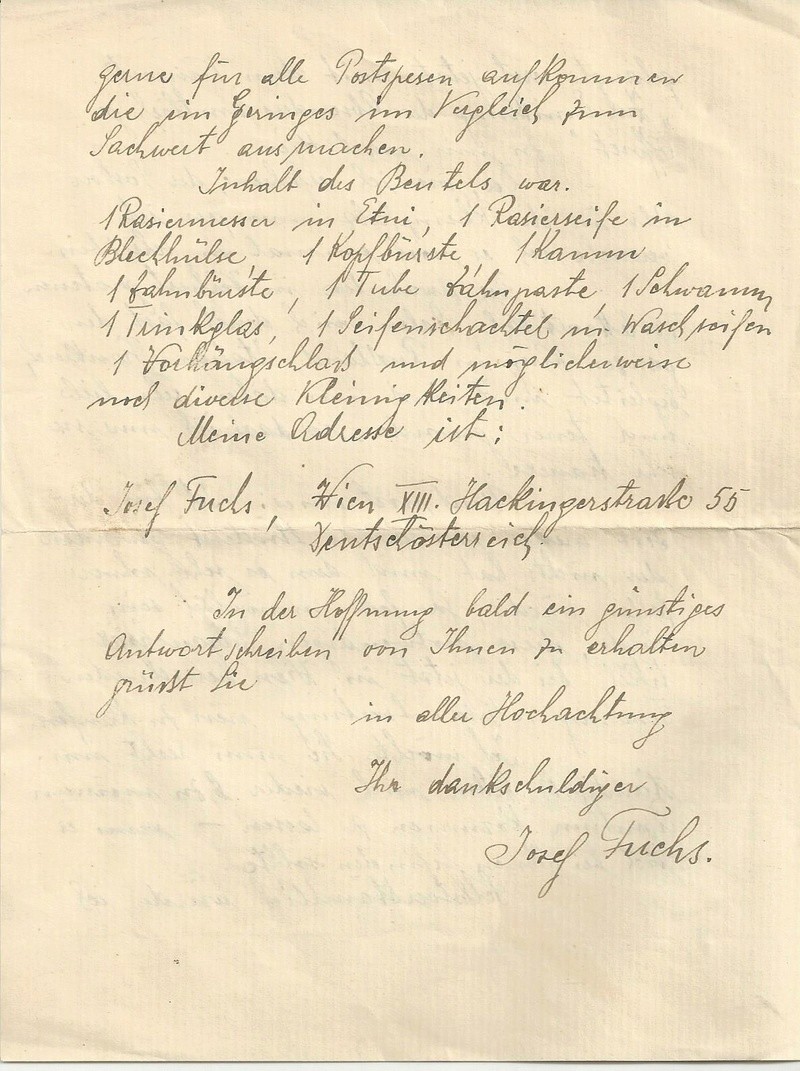 gerne für alle Postspesen aufkommen
die ein Geringes im Vergleich zum
Sachwert ausmachen.
Inhalt des Beutels war.
1 Rasiermesser in Etui, 1 Rasierseife in
Blechhülse, 1 Kopfbürste, 1 Kamm
1 Zahnbürste, 1 Tube Zahnpaste, 1 Schwamm,
1 Trinkglas, 1 Seifenschachtel m. Waschseifen
1 Vorhängschloß und möglicherweise
noch diverse Kleinigkeiten.
Meine Adresse ist:
Josef Fuchs, Wien XIII. Hackingerstraße 55
Deutschösterreich.
In der Hoffnung bald ein günstiges
Antwortschreiben von Ihnen zu erhalten
grüßt Sie
in aller Hochachtung
Ihr dankschuldiger
Josef Fuchs.